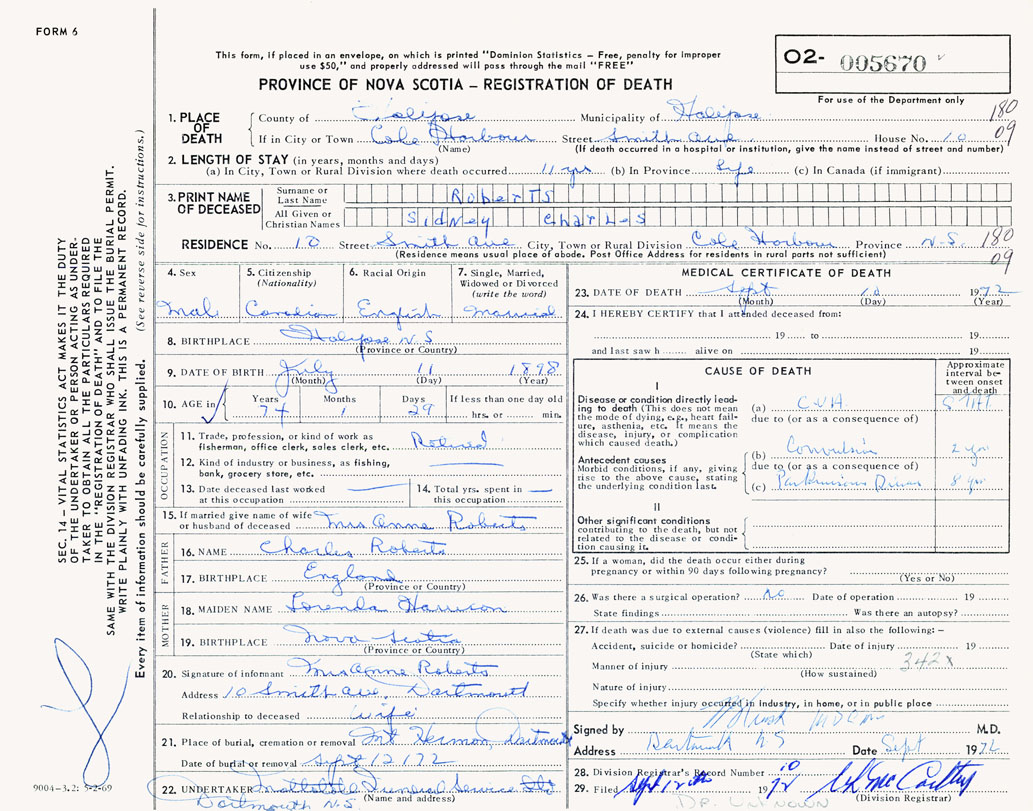 FORM 6
This form, if placed in an envelope, on which is printed "Dominion Statistics – Free, penalty for improper
use $50," and properly addressed will pass through the mail "FREE"
O2- 005670
For use of the Department only
PROVINCE OF NOVA SCOTIA – REGISTRATION OF DEATH
180
09
1. PLACE OF DEATH
County of Halifax Municipality of Halifax
If in City or Town Cole Harbour Street Smith Ave House No. 10
(Name) (If death occurred in a hospital or institution, give the name instead of street and number)
2. LENGTH OF STAY (in years, months and days)
(a) In City, Town or Rural Division where death occurred 11 yrs (b) In Province Life (c) In Canada (if immigrant)
3. PRINT NAME OF DECEASED
Surname or Last Name Roberts
All Given or Christian Names Sidney Charles
RESIDENCE No. 10 Street Smith Ave City, Town or Rural Division Cole Harbour Province N.S. 180
(Residence means usual place of abode. Post Office Address for residents in rural parts not sufficient) 09
4. Sex
Mal
5. Citizenship
(Nationality)
Canadian
6. Racial Origin
English
7. Single, Married,
Widowed or Divorced
(write the word)
Married
8. BIRTHPLACE Halifax N.S.
(Province or Country)
9. DATE OF BIRTH July 11 1898
(Month) (Day) (Year)
10. AGE in
Years Months Days If less than one day old
74 1 29 hrs. or min.
OCCUPATION
11. Trade, profession, or kind of work as
fisherman, office clerk, sales clerk, etc. Retired
12. Kind of industry or business, as fishing,
bank, grocery store, etc.
13. Date deceased last worked
at this occupation
14. Total yrs. spent in
this occupation
15. If married give name of wife
or husband of deceased Mrs Anne Roberts
FATHER
16. NAME Charles Roberts
17. BIRTHPLACE England
(Province or Country)
MOTHER
18. MAIDEN NAME Lorenda Harrison
19. BIRTHPLACE Nova Scotia
(Province or Country)
20. Signature of informant Mrs Anne Roberts
Address 10 Smith Ave, Dartmouth
Relationship to deceased wife
21. Place of burial, cremation or removal Mt Hermon, Dartmouth
Date of burial or removal Sept 12/72
22. UNDERTAKER Funeral Service Ltd
(Name and address)
Dartmouth N.S.
MEDICAL CERTIFICATE OF DEATH
23. DATE OF DEATH Sept 10 1972
(Month) (Day) (Year)
24. I HEREBY CERTIFY that I attended deceased from:
19 to 19
and last saw h alive on 19
CAUSE OF DEATH
Approximate
interval be-
tween onset
and death
I
Disease or condition directly lead-
ing to death (This does not mean
the mode of dying, e.g., heart fail-
ure, asthenia, etc. It means the
disease, injury, or complication
which caused death.)
(a) CVA
due to (or as a consequence of)
Antecedent causes
Morbid conditions, if any, giving
rise to the above cause, stating
the underlying condition last.
(b) Convulsion 2 yr
due to (or as a consequence of)
(c) Parkinsons Disease 8 yr
II
Other significant conditions
contributing to the death, but not
related to the disease or condi-
tion causing it.
25. If a woman, did the death occur either during
pregnancy or within 90 days following pregnancy?
(Yes or No)
26. Was there a surgical operation? no Date of operation 19
State findings Was there an autopsy?
27. If death was due to external causes (violence) fill in also the following: –
Accident, suicide or homicide? Date of injury 19
(State which)
Manner of injury 342X
(How sustained)
Nature of injury
Specify whether injury occurred in industry, in home, or in public place
Signed by M.D.
Address Dartmouth NS Date Sept 1972
28. Division Registrar's Record Number 10
29. Filed Sept 12th 1972
(Division Registrar)
DR. UNKNOWN
SEC. 14 – VITAL STATISTICS ACT MAKES IT THE DUTY
OF THE UNDERTAKER OR PERSON ACTING AS UNDER-
TAKER TO OBTAIN ALL THE PARTICULARS REQUIRED
IN THE "REGISTRATION OF DEATH" AND TO FILE THE
SAME WITH THE DIVISION REGISTRAR WHO SHALL ISSUE THE BURIAL PERMIT.
WRITE PLAINLY WITH UNFADING INK. THIS IS A PERMANENT RECORD.
Every item of information should be carefully supplied. (See reverse side for instructions.)
9004-3.2: 5-2-69